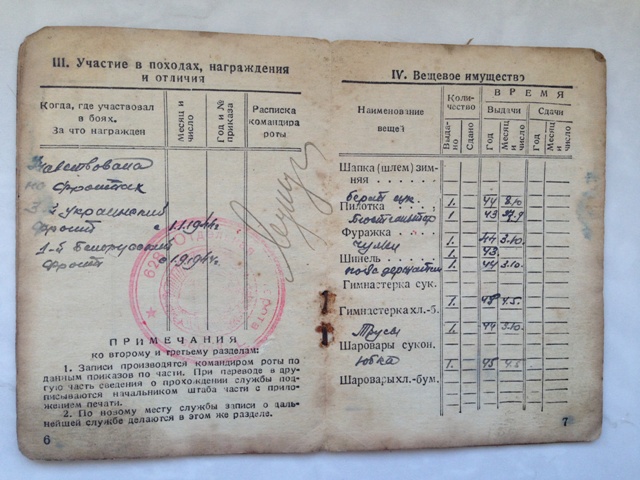 III. Участие в походах, награждения
и отличия
Когда, где участвовал
в боях.
За что награжден
Месяц и
число
Год и №
приказа
Расписка
командира
роты
Участвовала
на фронтах
3 Украинский
фронт с 1.1.1944г.
1-й Белорусский
фронт с 1.9.1944г.
ПРИМЕЧАНИЯ
ко второму и третьему разделам:
1. Записи производятся командиром роты по
данным приказов по части. При переводе в дру-
гую часть сведения о прохождении службы под-
писываются начальником штаба части с прило-
жением печати.
2. По новому месту службы записи о даль-
нейшей службе делаются в этом же разделе.
6
IV. Вещевое имущество
Наименование
вещей
Коли-
чество
ВРЕМЯ
Выдачи
Сдачи
Выда-
но
Сдано
Год
Месяц
и
число
Год
Месяц
и число
Шапка (шлем) зим-
няя . . . . . .
берет сук. 1. 44 8.10
Пилотка . . . .
Бюстгальтер 1. 43
Фуражка . . . .
чулки 1. 44 3.10.
Шинель . . . . 1. 43.
пояс держатель 1. 44 3.10.
Гимнастерка сук.
1. 45 4.5.
Гимнастерка хл.-б.
Трусы 1. 44 3.10
Шаровары сукон.
Юбка 1. 45 4.5
Шаровары хл.-бум.
7